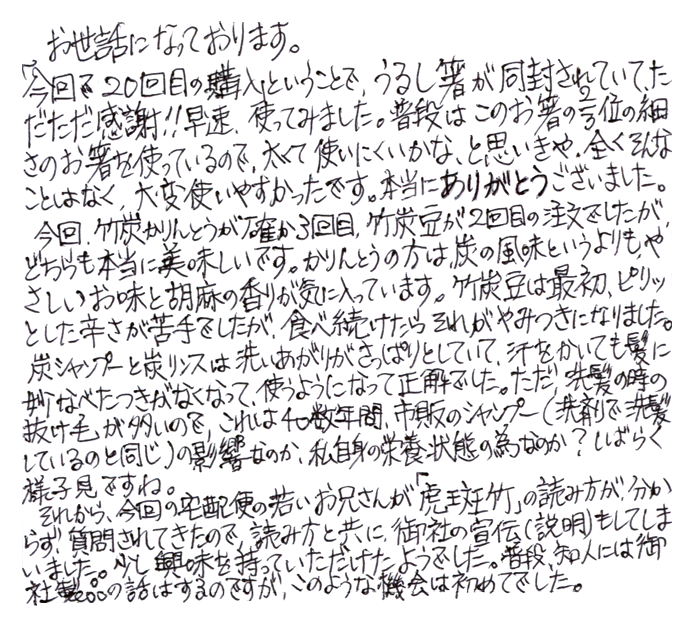 お世話になっております。
今回で20回目の購入ということで、うるし箸が同封されていて、た
だただ感謝!!早速、使ってみました。普段はこのお箸の½位の細
さのお箸を使っているので、太くて使いにくいかな、と思いきや、全くそんな
ことはなく、大変使いやすかったです。本当にありがとうございました。
今回、竹炭かりんとうが確か3回目、竹炭豆が2回目の注文でしたが、
どちらも本当に美味しいです。かりんとうの方は、炭の風味というよりも、や
さしいお味と胡麻の香りが気に入っています。竹炭豆は最初、ピリッ
とした辛さが苦手でしたが、食べ続けたらそれがやみつきになりました。
炭シャンプーと炭リンスは洗いあがりがさっぱりとしていて、汗をかいても髪に
妙なべたつきがなくなって、使うようになって正解でした。ただ、洗髪の時の
抜け毛が多いので、これは十数年間、市販のシャンプー(洗剤で洗髪
しているのと同じ)の影響なのか、私自身の栄養状態の為なのか?しばらく
様子見ですね。
それから、今回の宅配便の若いお兄さんが「虎斑竹」の読み方が分か
らず、質問されてきたので、読み方と共に、御社の宣伝(説明)もしてしま
いました。。。少し興味を持っていただけたようでした。普段、知人には御
社製品の話はするのですが、このような機会は初めてでした。